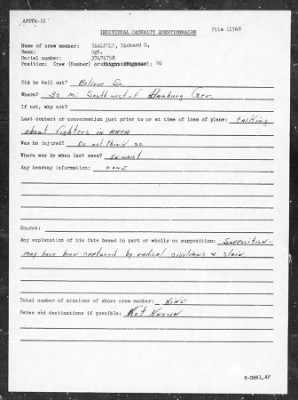 AFPPA-12
INDIVIDUAL CASUALTY QUESTIONNAIRE
File 11368
Name of crew member: Richard G.
Rank: Sgt.
Serial number: 37674758
Position: Crew (Bomber) NG
Did he bail out? Believe So
Where? 30 mi Southwest of Hamburg Ger.
If not, why not?
Last contact or conversation just prior to or at time of loss of plane: talking
about fighters in area
Was he injured? Do not think so
Where was he when last seen? in waist
Any hearsay information: none
Source:
Any explanation of his fate based in part or wholly on supposition: Supposition -
may have been captured by radical civilians & slain
Total number of missions of above crew member: Nine
Dates and destinations if possible: Not Known